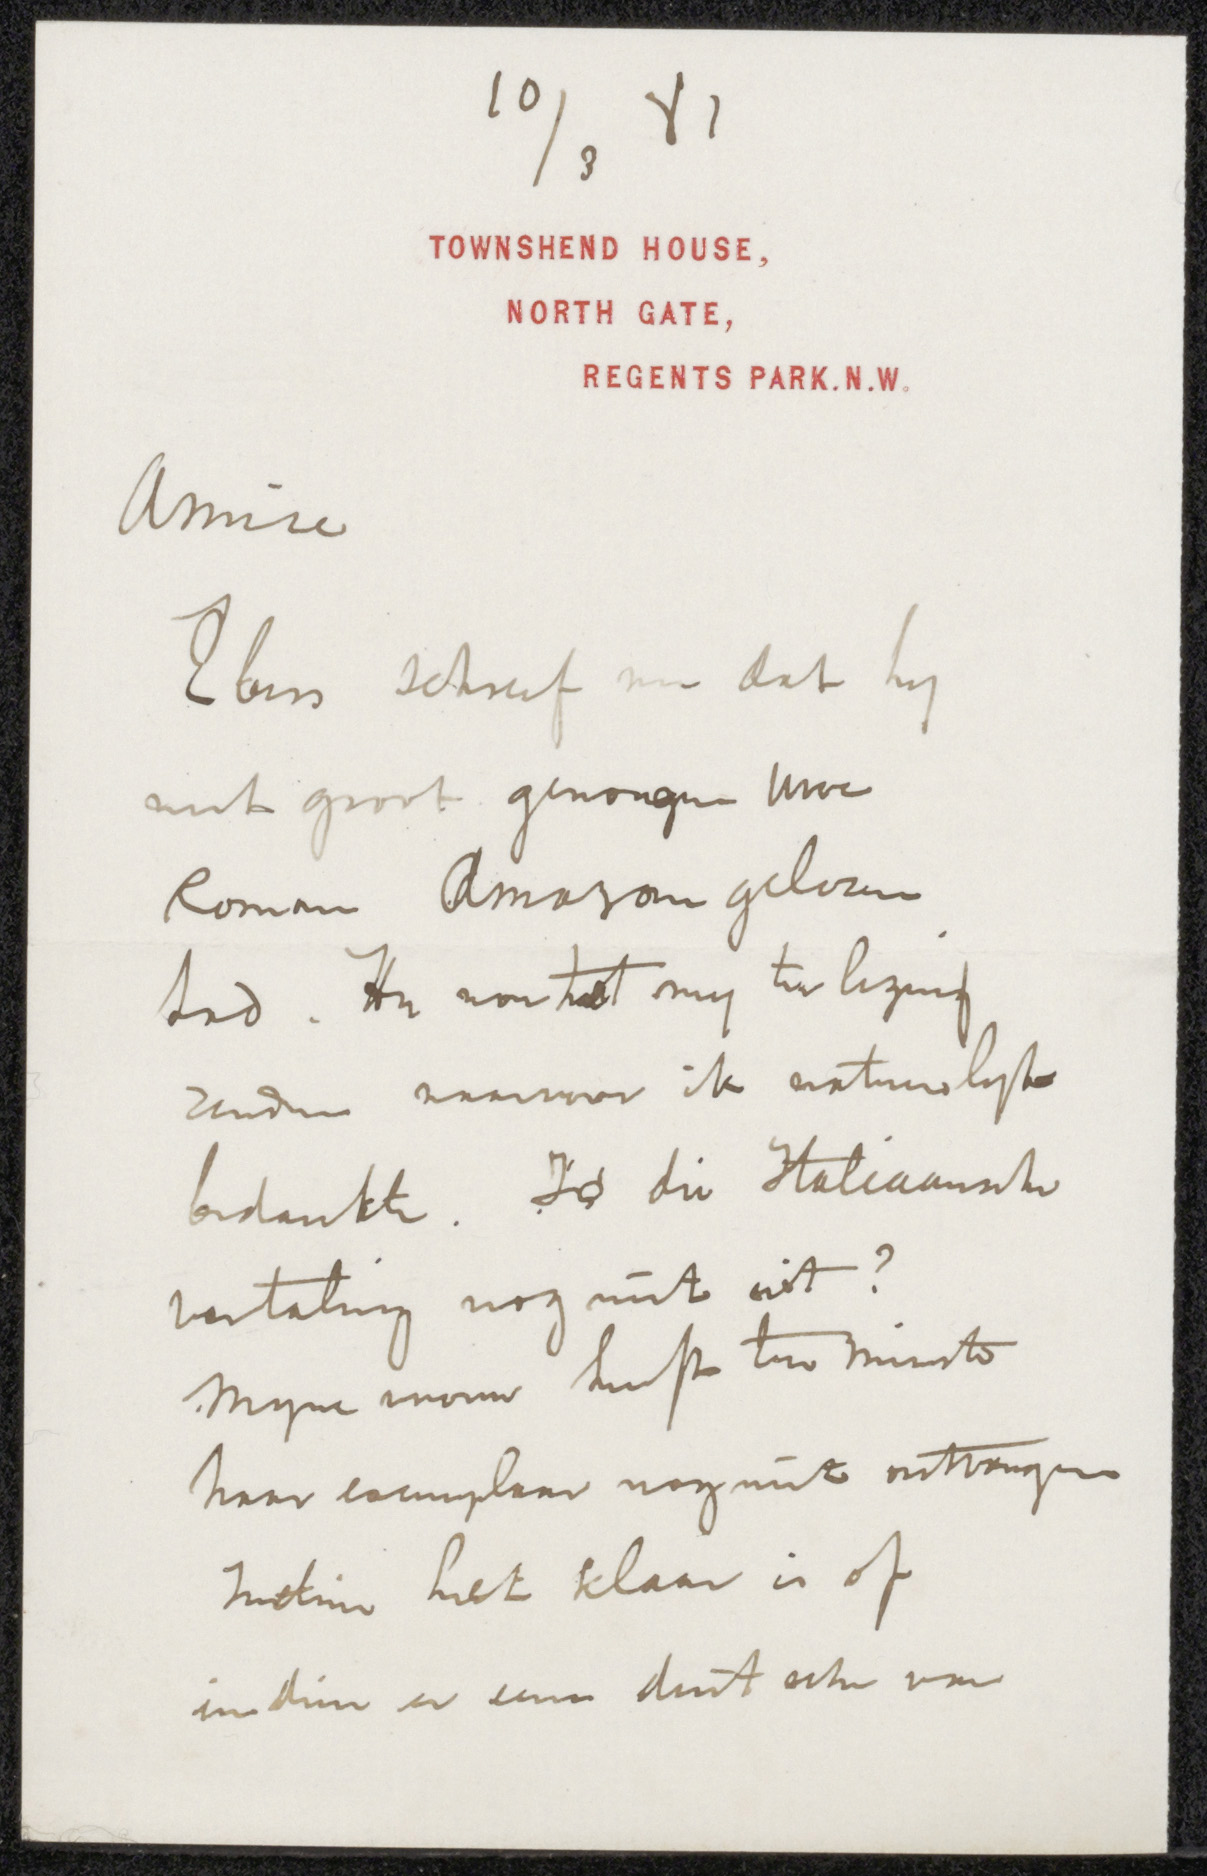 10/3 81
TOWNSHEND HOUSE,
NORTH GATE,
REGENTS PARK.N.W.
Amice
Ebers schreef me dat hy
met groot genoegen uwe
Roman Amazone gelezen
had. Hy wou het my ter lezing
zenden waarvoor ik natuurlyk
bedankte. Is die Italiaansche
vertaling nog niet uit?
Myne vrouw heeft ten minste
haar exemplaar nog niet ontvangen
Indien het klaar is of
indien er eene duitsche van